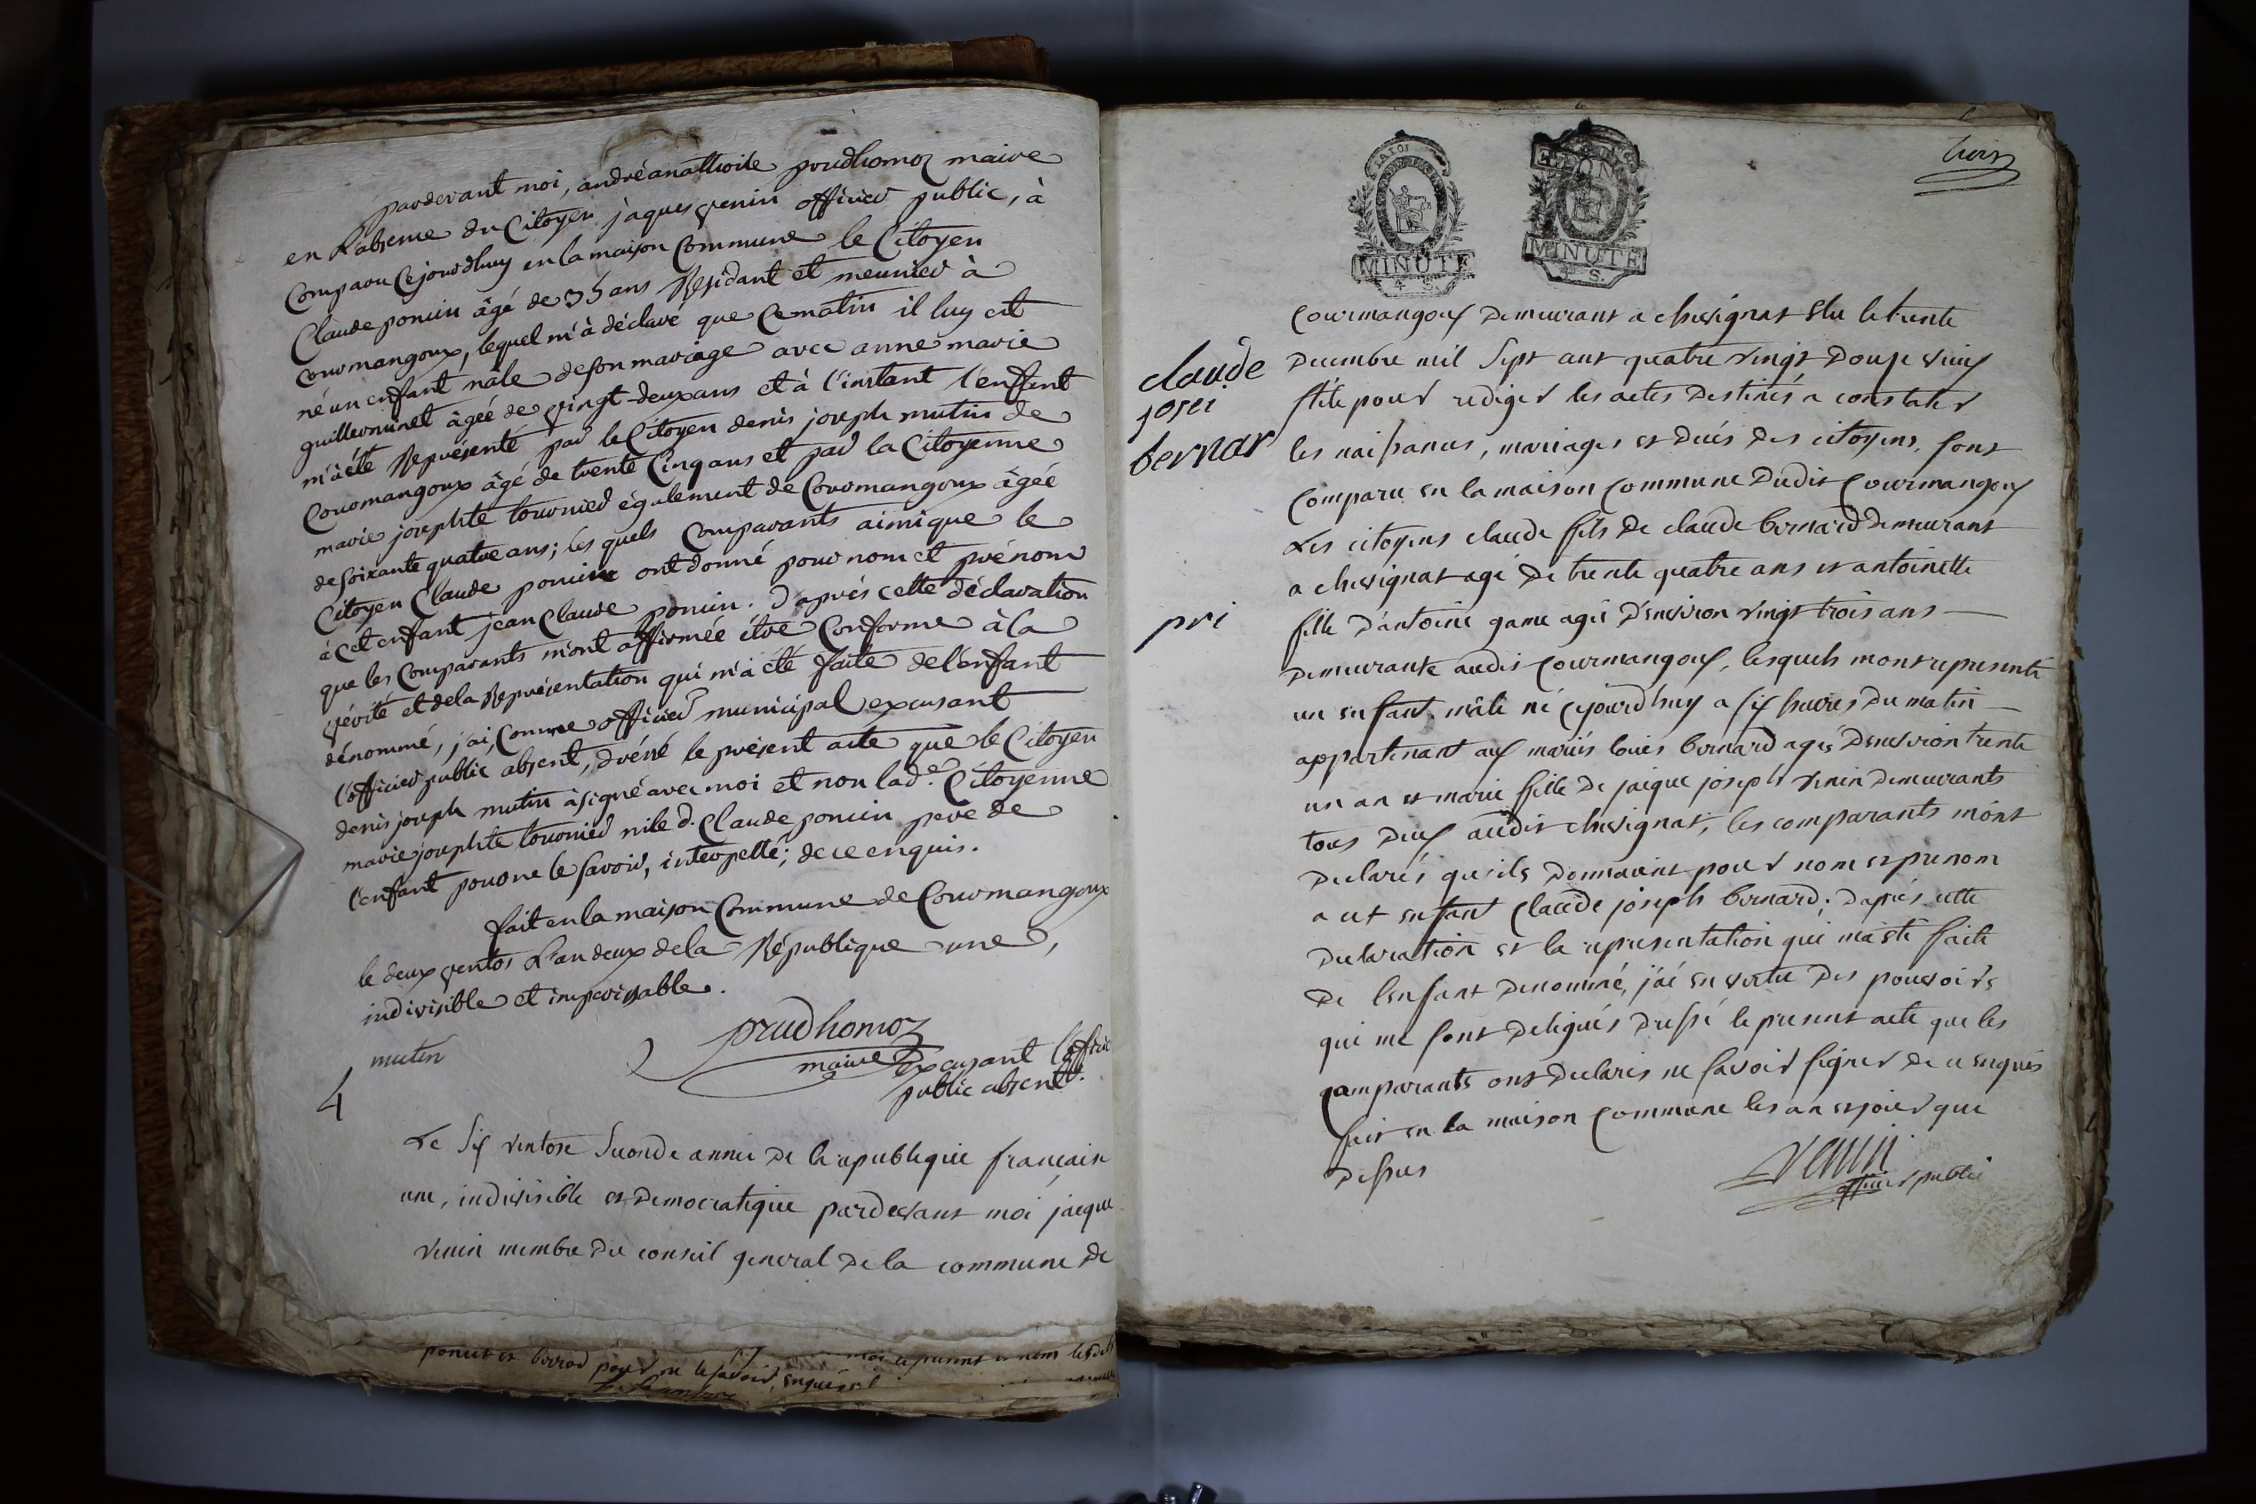 pardevant moi, andré anathoile prudhomoz maire
en L'absence du Citoyen jaques venin officier public, à
Comparu Cejourdhuy en la maison Commune le Citoyen
Claude poncin âgé de 35 ans Résidant et meunier à
Courmangoux, lequel m'à déclaré que Cematin il luy est
né un enfant mâle de son mariage avec anne marie
guillerminet âgée de vingt-deux ans et à l'instant l'enffent
m'à été Représenté par le Citoyen denis joseph mutin de
Courmangoux âgé de trente Cinq ans et par la Citoyenne
marie josephte tournier également de Courmangoux âgée
de soixante quatre ans; les quels Comparants ainsi que le
Citoyen Claude poncin ont donné pour nom et prénom
à cet enfant jean Claude poncin. D'après cette déclaration
que les Comparants m'ont affirmée être Conforme à la
vérité et de la Représentation qui m'a été faite de l'enfant
dénommé, j'ai, Comme officier municipal excusant
l'officier public absent, dréssé le présent acte que le Citoyen
denis joseph mutin à signé avec moi et non lad.e Citoyenne
marie josephte tournier ni led. Claude poncin pere de
l'enfant pour ne le savoir, interpellé; de ce enquis.
fait en la maison Commune de Courmangoux
le deux ventos L'an deux de la République une,
indivisible et imperissable.
mutin
prudhomoz
maire Excusant L'offici
public absent.
4
Le six ventose seconde année de la republique françaisse
une, indivisible et democratique pardevant moi jacque
venin membre du conseil general de la commune de
poncet et bovrod pour ne le savoir, enquis
trois
LA LOI
MINUTE
4 S.
MINUTE
4 S.
claude
josei
bernar
pri
Courmangoux demeurant a chevignat elu le trente
decembre mil sept cent quatre vingt douze vieux
stile pour rediger les actes destinés a constater
les naissances, mariages et decés des citoyens, sont
comparu en la maison commune dudit Courmangoux
Les citoyens claude fils de claude bernard demeurant
a chevignat agé de trente quatre ans et antoinette
fille d'antoine game agée d'environ vingt trois ans
demeurante audit courmangoux, lesquels mont representé
un enfant mâle né cejourd'huy a six heures du matin
appartenant aux mariés louis bernard agés d'environ trente
un an et marie fille de jaique joseph venin demeurants
tous deux audit chevignat, les comparants m'ont
declarés qu'ils donnaient pour nom et prenom
a cet enfant claude joseph bernard; d'aprés cette
declaration et la representation qui m'a eté faite
de l'enfant denommé, j'ai en vertu des pouvoirs
qui me sont delegués dressé le present acte que les
comparants ont declarés ne savoir signer de ce enquis
fait en la maison commune les an et jour que
dessus
Venin
officier public